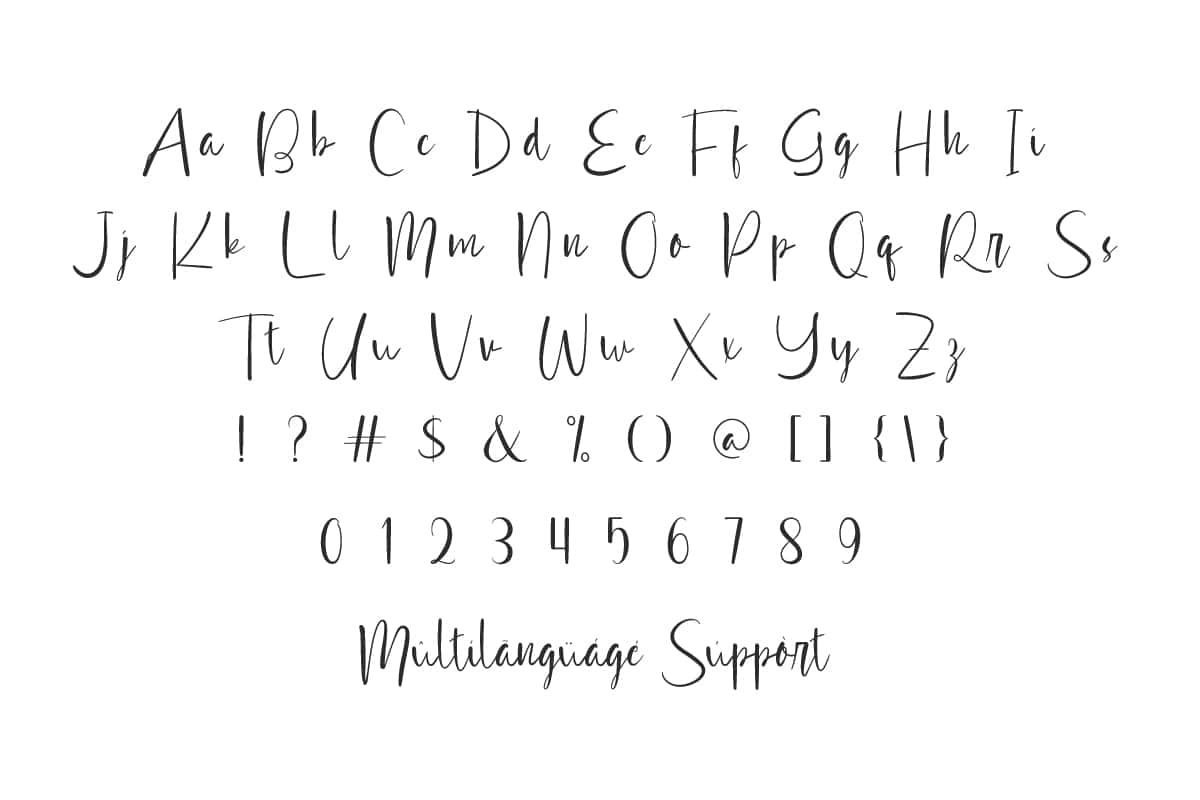 Aa Bb Cc Dd Ee Ff Gg Hh Ii
Jj Kk Ll Mm Nn Oo Pp Qq Rr Ss
Tt Uu Vv Ww Xx Yy Zz
! ? # $ & % () @ [] {\}
0 1 2 3 4 5 6 7 8 9
Mûltilãngüágé Súppòrt